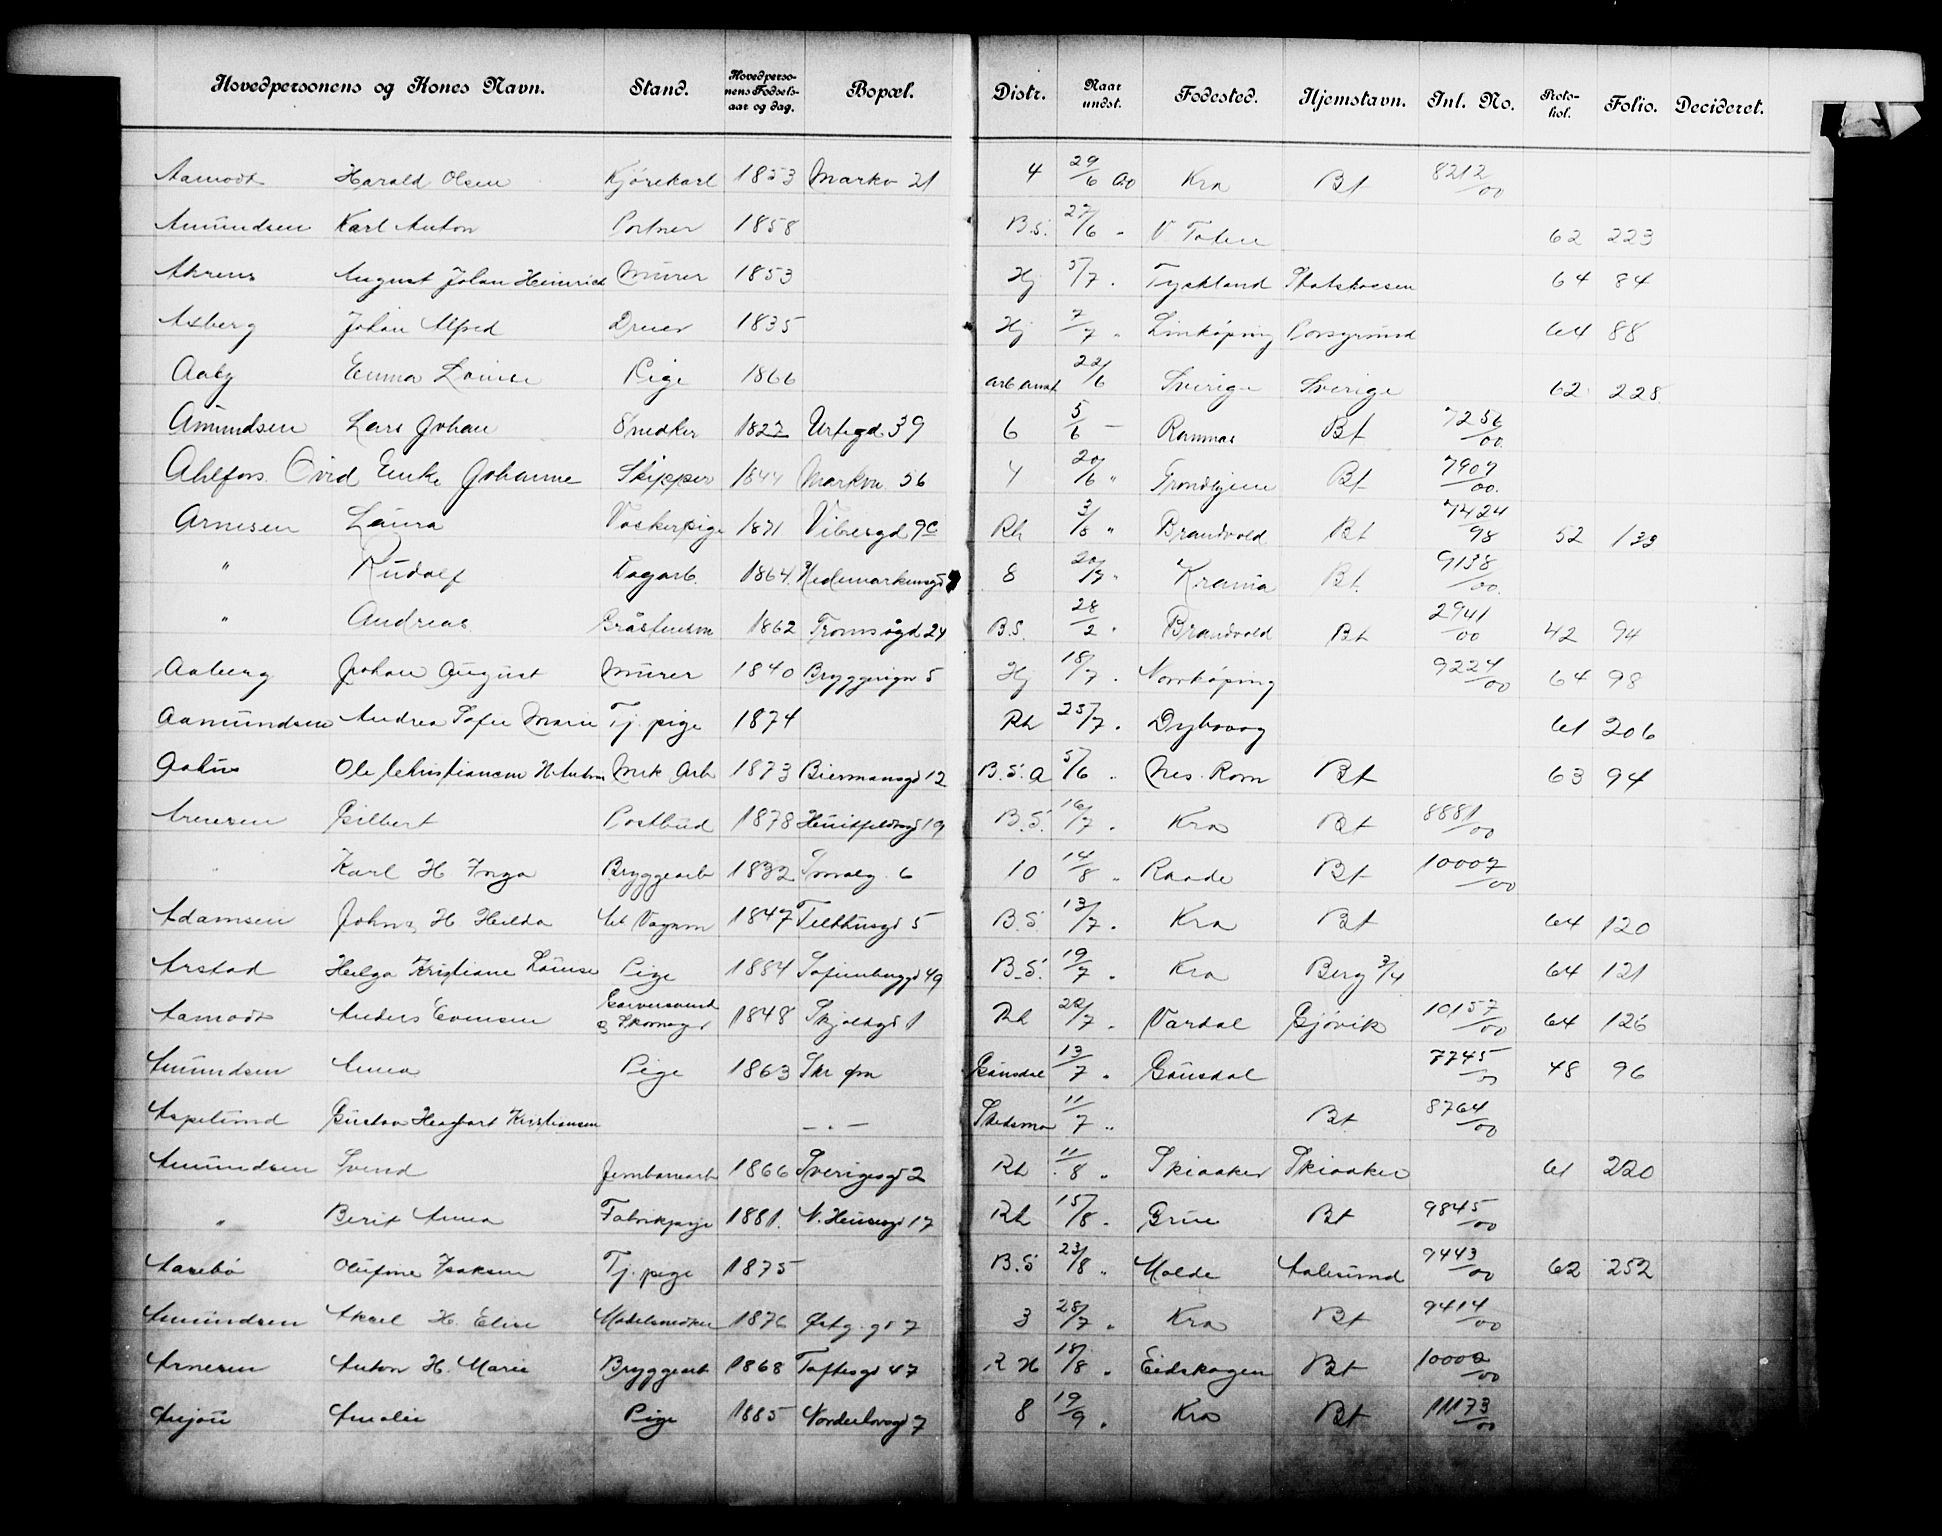 Hovedpersonens og Kones Navn. Stand. Hovedpersonens Fødselsaar og dag. Bopæl. Distr. Naar undst. Fødested. Hjemstavn. Inl. No. Protokol. Folio. Decideret.
Aamodt Harald Olsen Kjørekarl 1853 Markv 21 4 29/6 00 Kra Bt 8212/00
Amundsen Karl Anton Portner 1858 B.S. 27/6 " V Toten 62 223
Ahrens August Johan Heinrich Murer 1853 Hj 5/7 " Tyskland 64 84
Axberg Johan Alfred Dreier 1835 Hj 7/7 " Linköping Porsgrund 64 88
Aaby Emma Louise Pige 1866 22/6 Sverige Sverige 62 228
Amundsen Lars Johan Snedker 1827 Urtegd 39 6 5/6 — Romnes Bt 7256/00
Ahlfors Ovid Enke Johanne Skipper 1844 Markv 56 4 20/6 " Trondhjem Bt 7907/00
Arnesen Laura Vaskerpige 1871 Vibesgd 9c Rh 3/8 " Brandvold Bt 7424/98 52 133
" Rudolf Dagarb. 1864 Hedemarkensgd 8 20/7 " Krania Bt. 9138/00
" Andreas Gråstensm 1862 Tromsøgd 24 B.S. 28/2 " Brandvold Bt 2941/00 42 94
Aaberg Johan August Murer 1840 Bryggerigv 5 Hj 18/7 " Norrköping 9224/00 64 98
Aamundsen Andrea Sofie Marie Tj. pige 1874 Rh 25/7 " Dybvaag 61 206
Ole Christiansen H. Anton Mek Arb 1873 Biermansgd 12 B.S. a 5/6 " Nes. Rom Bt 63 94
Arnesen Gilbert Postbud 1878 Heuitfeldtsgd 19 B.S. 16/7 " Kra Bt 8881/00
" Karl H Inga Bryggearb 1832 Smalg. 6 10 14/8 " Raade Bt 10007/00
Adamsen Johns H Hilda 1847 Telthusgd 5 B.S. 13/7 " Kra Bt 64 120
Arstad Helga Kristiane Louise Pige 1884 Sofienberggd 49 B.S. 19/7 " Kra Berg 3/4 64 121
Aamodt Anders Evensen Garversvend & Skomager 1848 Skjoldgd 1 Rh 20/7 " Vardal Gjøvik 10157/00 64 126
Amundsen Anna Pige 1863 Gausdal 13/7 " Gausdal 7745/00 48 96
Aspelund Gustav Hagbart Kristiansen — " — Skedsmo 11/7 " Bt 8764/00
Amundsen Svend Jernbanearb 1866 Sverigesgd 2 Rh 11/8 " Skiaaker Skiaaker 61 220
" Berit Anna Fabrikpige 1881. N. Heusegd 17 Rh 15/8 " Grue Bt 9845/00
Aasebø Olufine Isaksen Tj. pige 1875 B.S 23/8 " Molde Aalesund 9443/00 62 252
Amundsen Aksel H. Elise Modelsnedker 1876 Østg. gd 7 3 28/7 " Kra Bt 9414/00
Arnesen Anton H. Marie Bryggearb 1868 Toftesgd 47 R H 18/8 " Eidskogen Bt 10002/00
Anjou Amalie Pige 1885 Norderhovsgd 7 8 19/9 " Kra Bt 11173/00